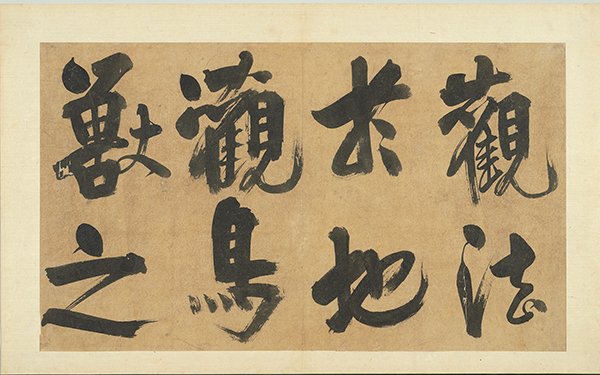 觀法
於地
觀鳥
獸之